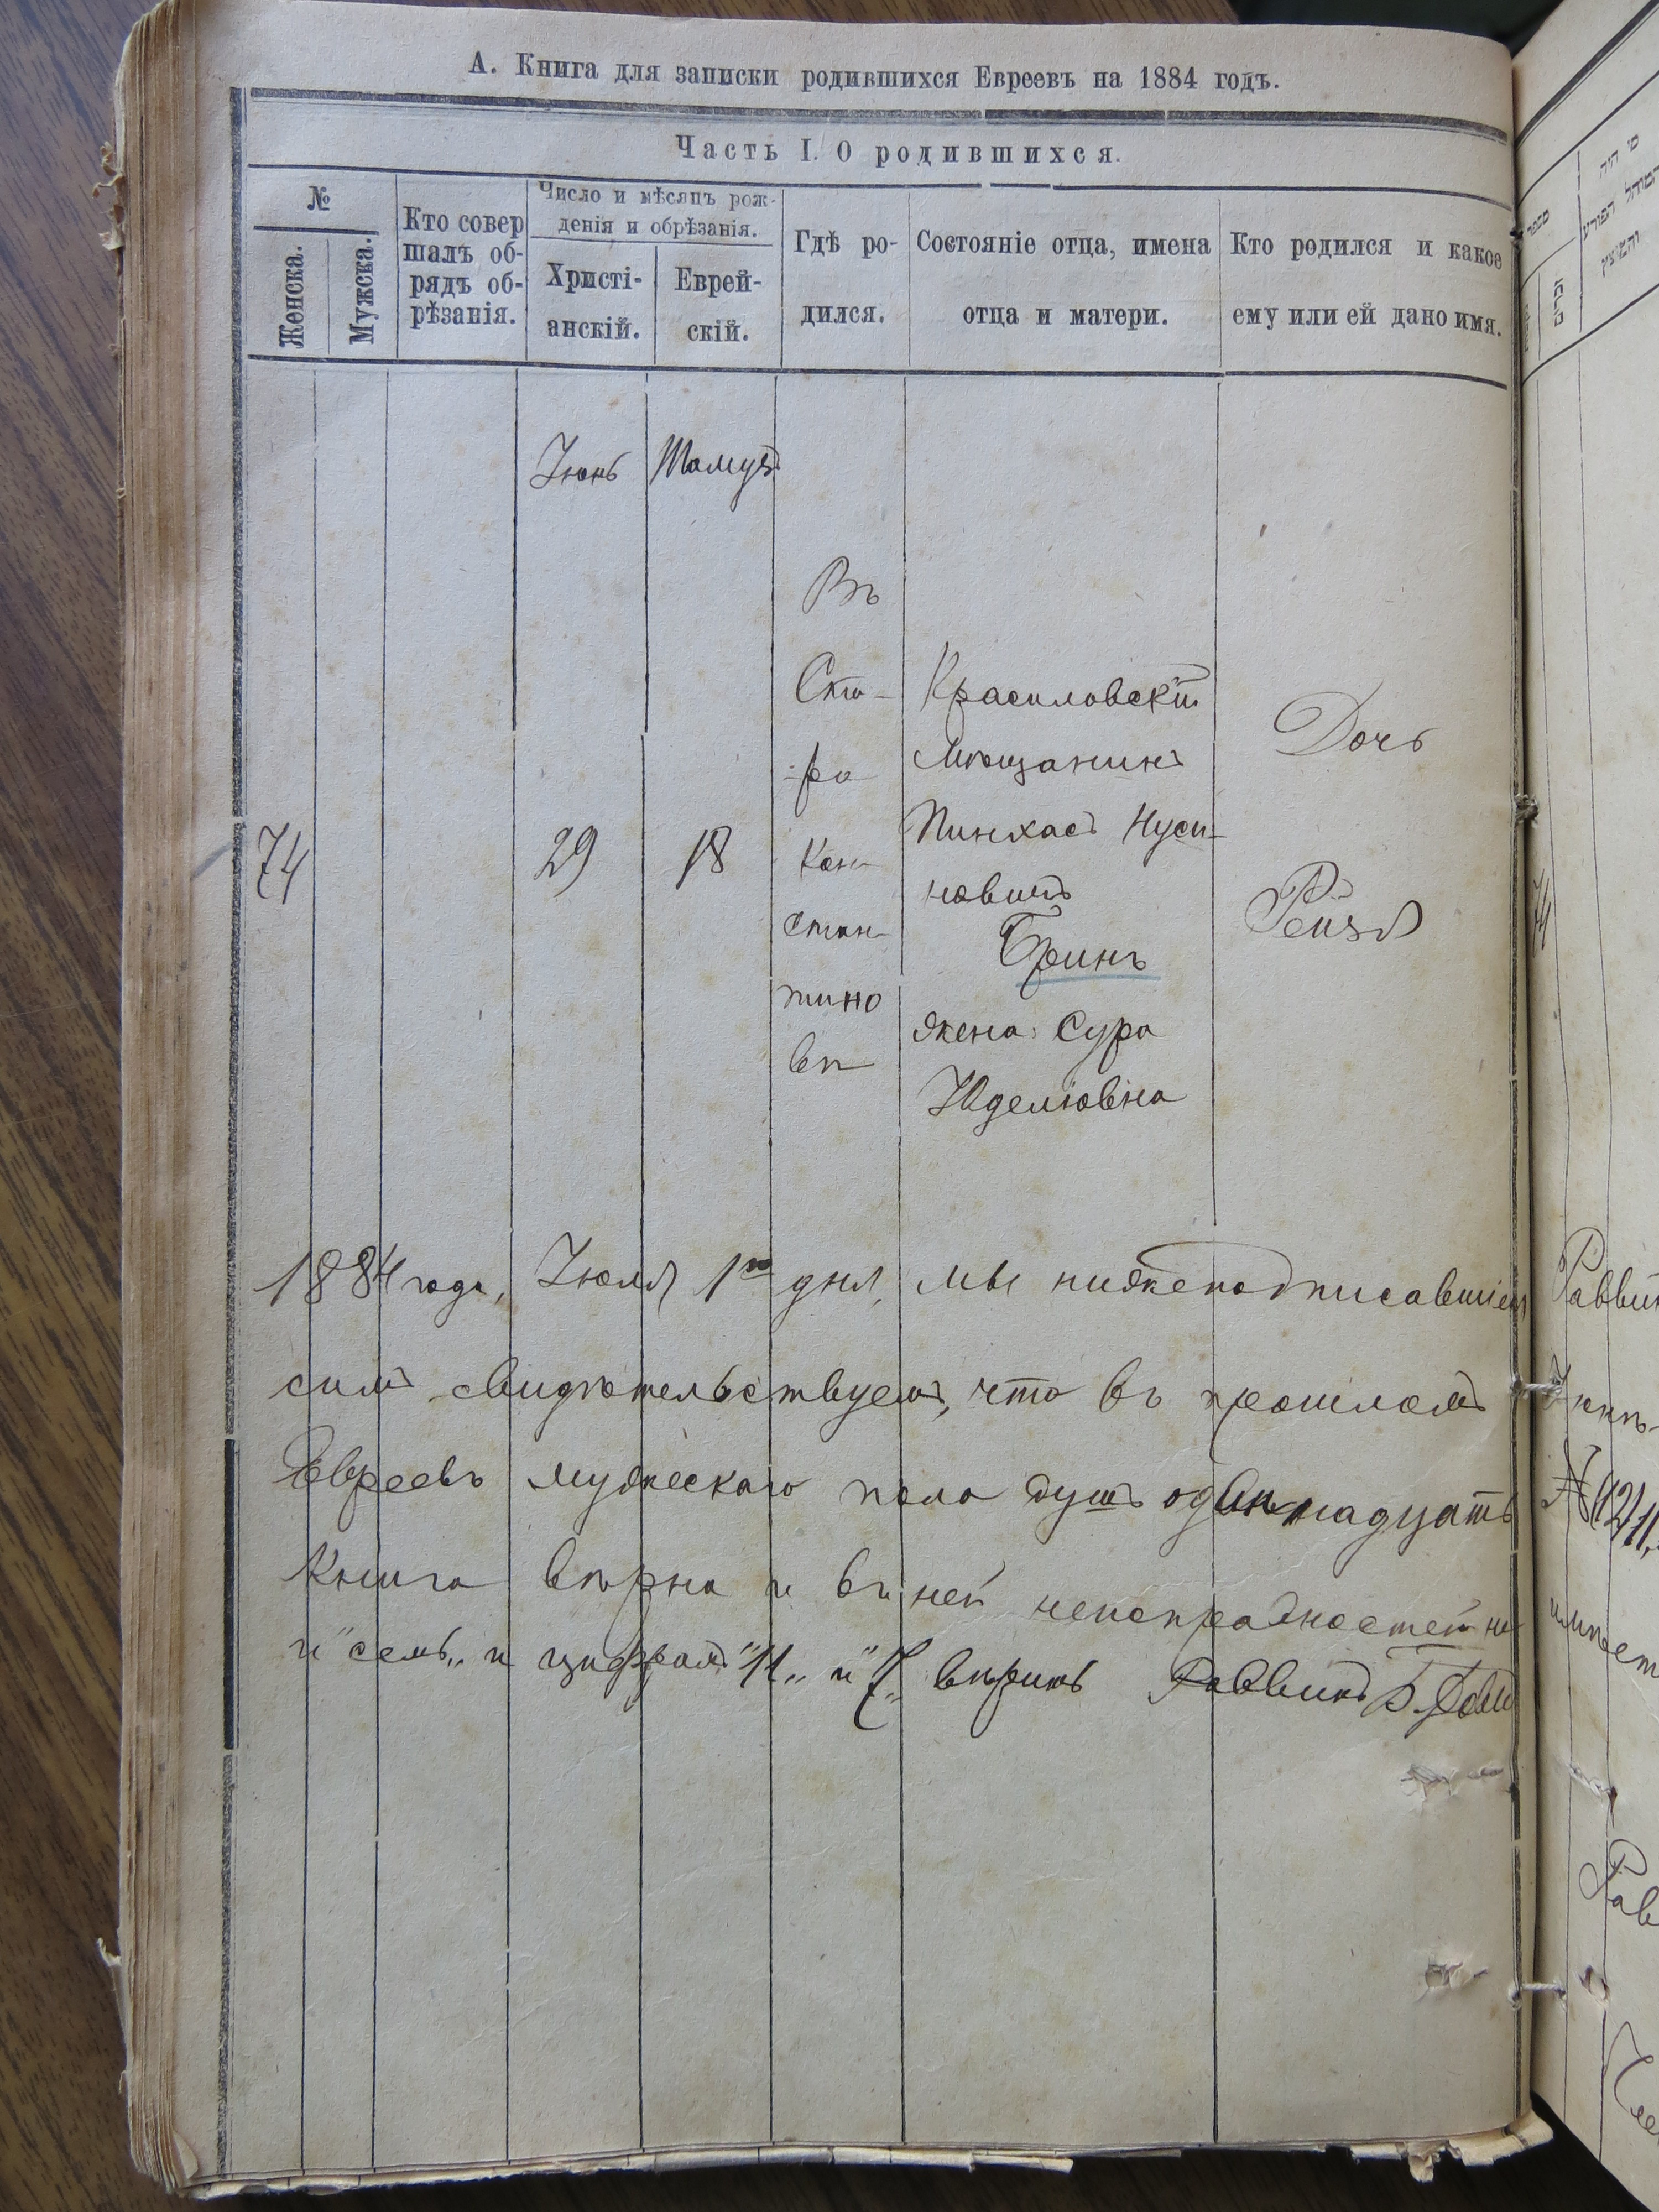 А. Книга для записки родившихся Евреевъ на 1884 годъ.
Часть I. О родившихся.
№
Женска.
Мужска.
Кто совер
шалъ об-
рядъ об-
рѣзанія.
Число и мѣсяцъ рож-
денія и обрѣзанія.
Христі-
анскій.
Еврей-
скій.
Гдѣ ро-
дился.
Состояніе отца, имена
отца и матери.
Кто родился и какое
ему или ей дано имя.
Іюнь
Тамузъ
74
29
18
Въ
Ста-
ро
Кон-
стан-
тино
вѣ
Красиловскій
Мѣщанинъ
Пинхасъ Нуси-
новичъ
Гринъ
жена Сура
Юделіовна
Дочь
Рейзя
1884 года, Іюля 1го дня, мы нижеподписавшіеся
симъ свидѣтельствуемъ, что въ прошломъ
Евреевъ мужескаго пола душъ одинадцать
Книга вѣрна и въ ней неисправностей не
и "семь" и цифрамъ "11" и "7" вѣрить Раввинъ Б.